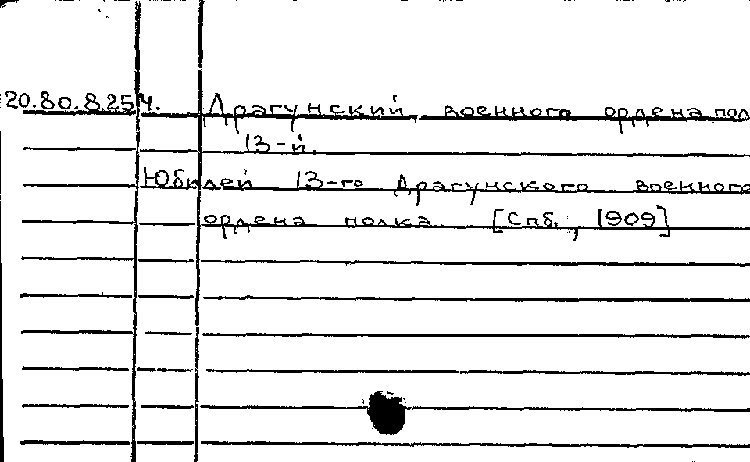 20.80.8254. Драгунский военного ордена пол
13-й.
Юбилей 13-го Драгунского военного
ордена полка. [Спб., 1909]